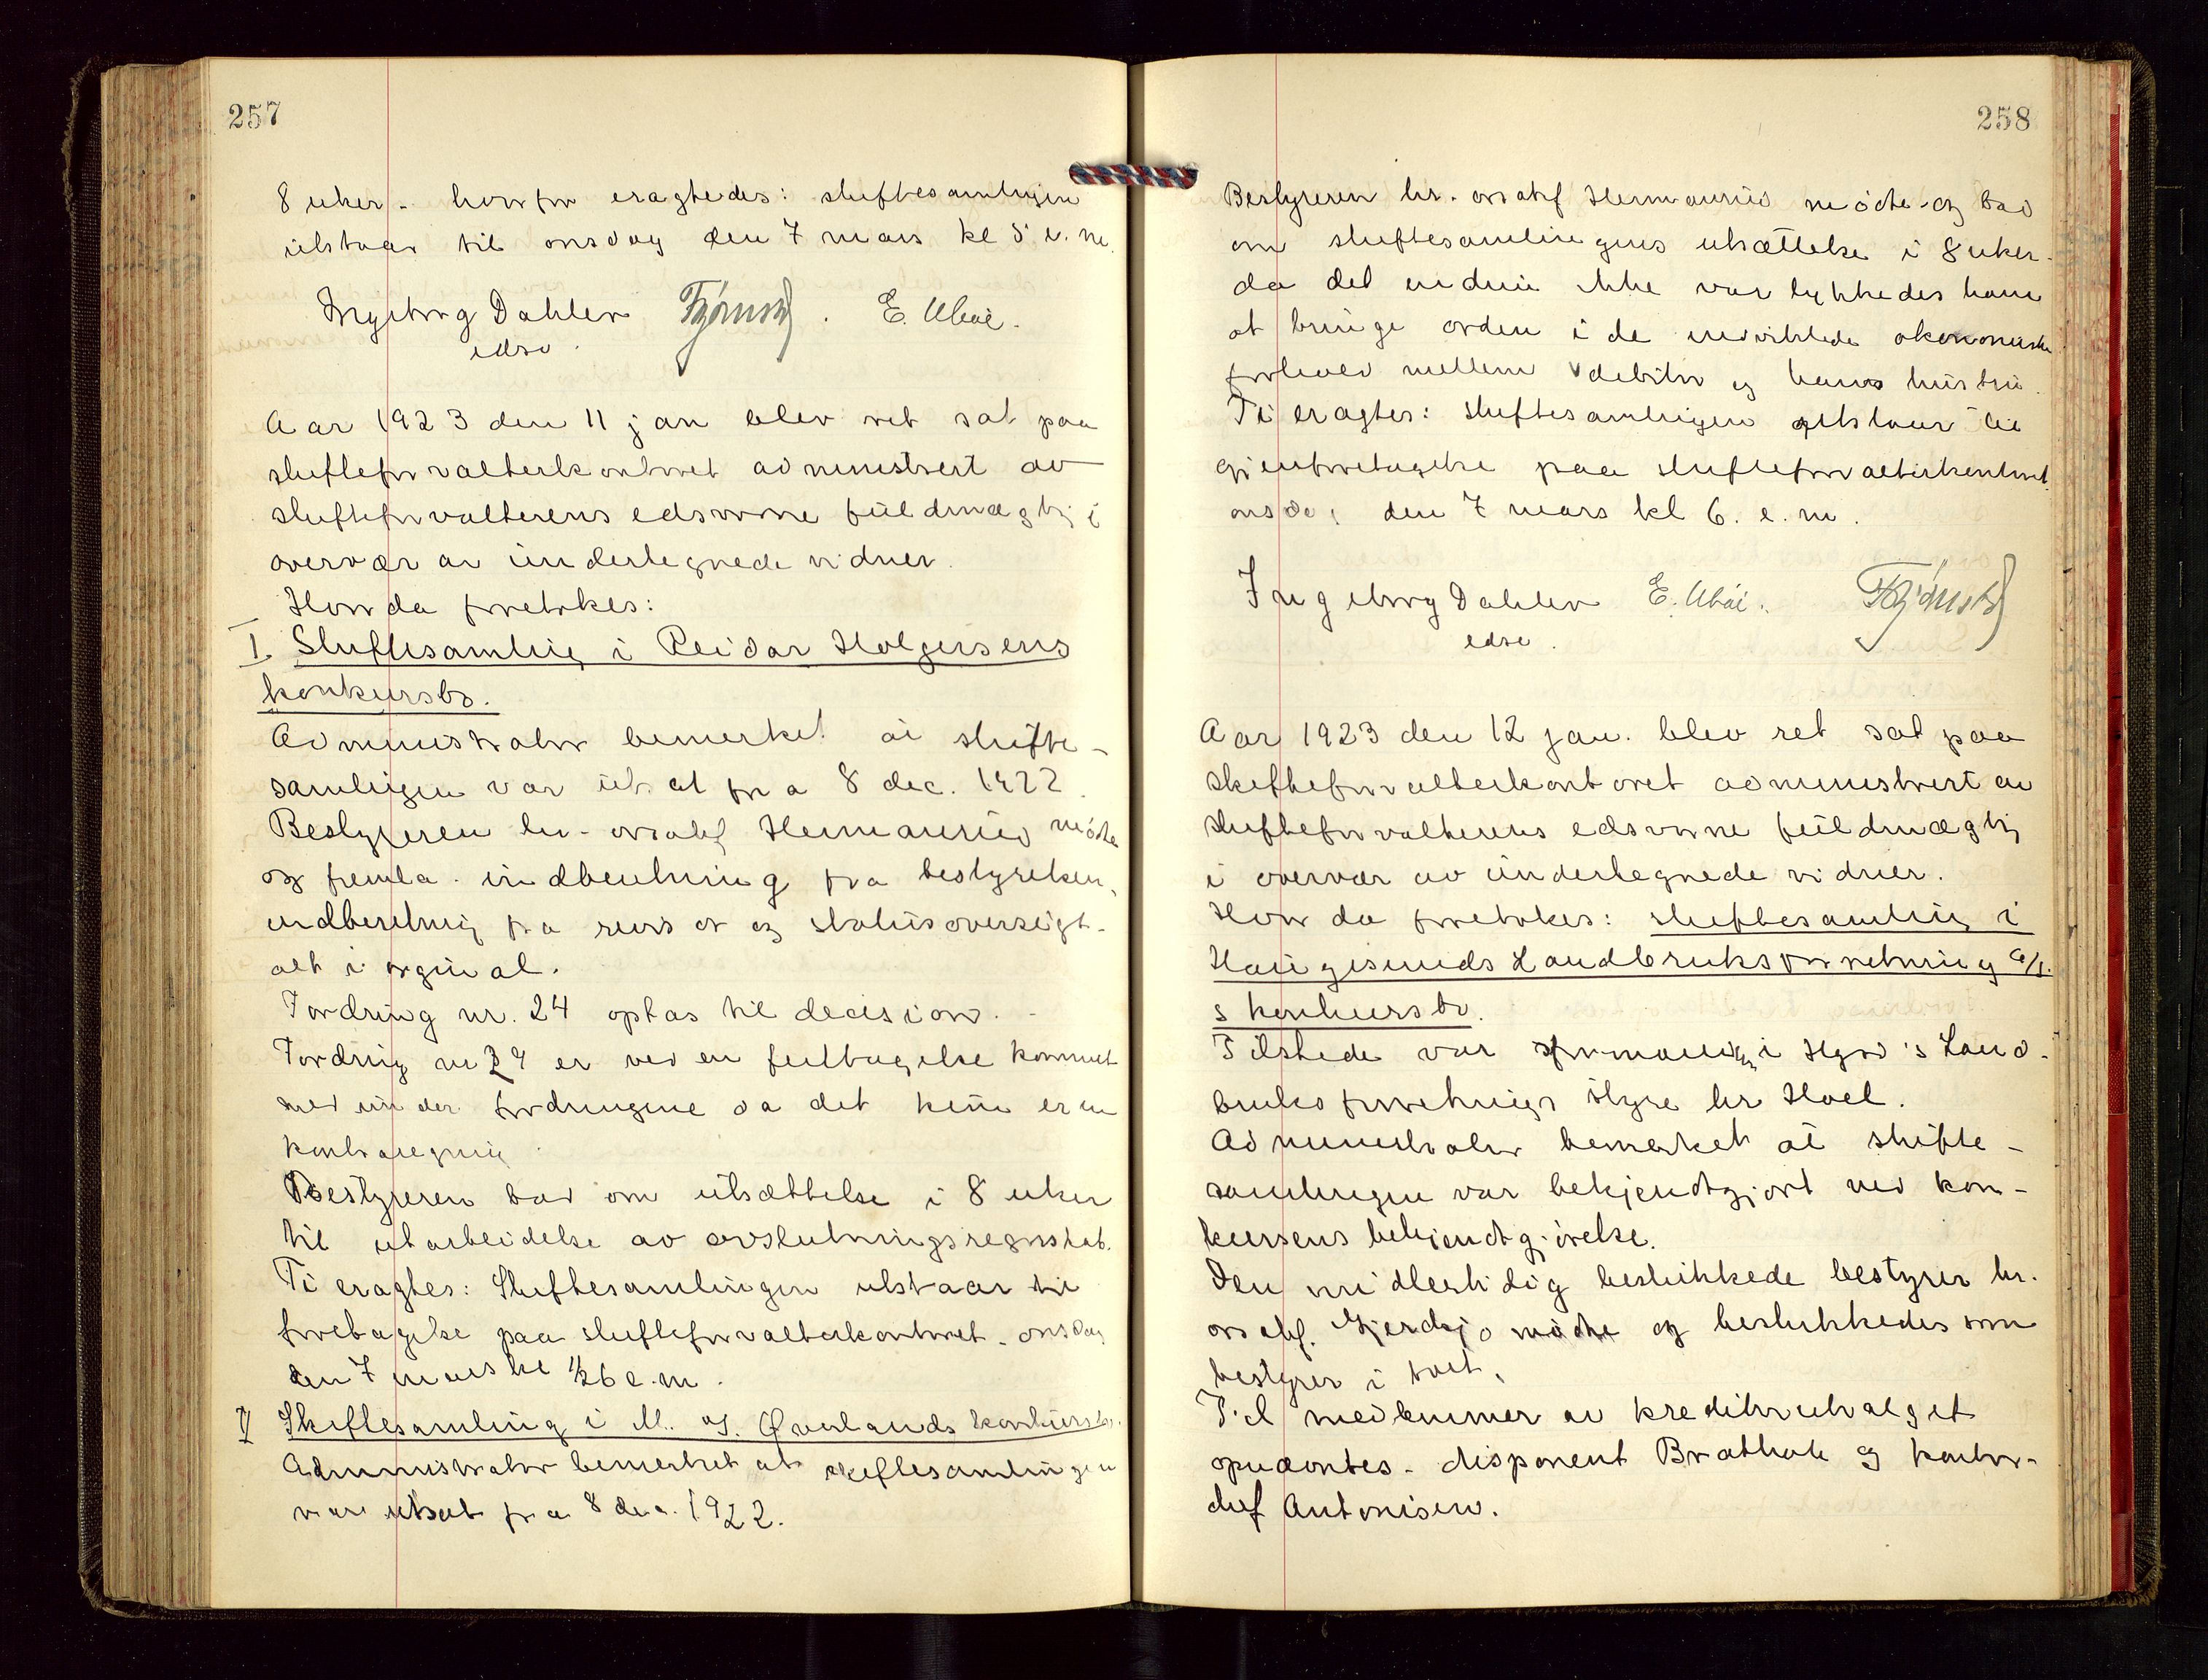 257
8 uker - hvorfor eragtedes: skiftesamlingen
utstaar til onsdag den 7 mars kl 5 e.m.
Ingeborg Dahler E. Ubøe.
edsv.
Aar 1923 den 11 jan blev ret sat paa
skifteforvalterkontoret administrert av
skifteforvalterens edsvorne fuldmægtig i
overvær av undertegnede vidner.
Hvor da foretokes:
I. Skiftesamling i Reidar Holgersens
konkursbo.
Administrator bemerket at skifte-
samlingen var utsat fra 8 dec. 1922.
Bestyreren hr. orsakf Hermansrud møtte
og fremla indberetning fra bestyrelsen,
indberetning fra revisor og statusoversigt -
alt i orginal.
Fordring nr. 24 optas til decision.
Fordring nr 24 er ved en feiltagelse kommet
med under fordringene da det kun er en
kontraregning
Bestyreren bad om utsættelse i 8 uker
til utarbeidelse av avslutningsregnskab.
Ti eragtes: Skiftesamlingen utstaar til
foretagelse paa skifteforvalterkontoret onsdag
den 7 mars kl 1/2 6 e.m.
II Skiftesamling i M. og J. Øverlands konkursbo.
Administrator bemerket at skiftesamlingen
var utsat fra 8 dec. 1922.
258
Bestyreren hr. orsakf Hermansrud møtte og bad
om skiftesamlingens utsættelse i 8 uker
da det endnu ikke var lykkedes ham
at bringe orden i de indviklede økonomiske
forhold mellem debitor og hans hustru.
Ti eragtes: Skiftesamlingen utstaar til
gjenforetagelse paa skifteforvalterkontoret
onsdag den 7 mars kl 6. e.m.
Ingeborg Dahler E. Ubøe.
edsv.
Aar 1923 den 12 jan. blev ret sat paa
skifteforvalterkontoret administrert av
skifteforvalterens edsvorne fuldmægtig
i overvær av undertegnede vidner.
Hvor da foretokes: skiftesamling i
Haugesunds Landbruksforretning A/S.
s konkursbo.
Tilstede var formanden i Hgsd's Land-
bruksforretnings styre hr Hoel.
Administrator bemerket at skifte-
samlingen var bekjendtgjort ved kon-
kursens bekjendtgjørelse.
Den midlertidig beskikkede bestyrer hr.
orsakf. møtte og beskikkedes som
bestyrer i boet.
Til medlemmer av kreditorutvalget
opnævntes disponent Brathole og kontor-
chef Antonisen.